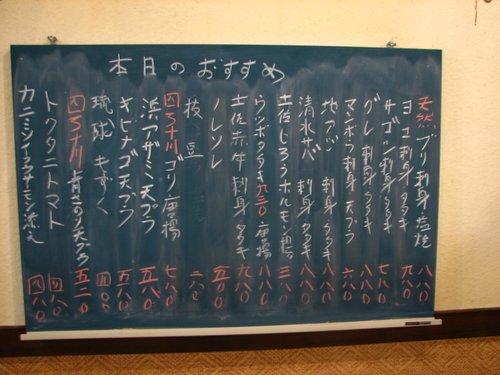 本日のおすすめ
天然ブリ刺身塩焼 八八〇
ヨコ刺身タタキ 九八〇
サゴシ刺身タタキ 八八〇
グレ刺身タタキ 八八〇
マンボウ刺身天プラ 六八〇
地アジ刺身タタキ 八八〇
清水サバ刺身タタキ 八八〇
土佐じろうホルモン 三八〇
ウツボタタキ九三〇唐揚 八八〇
土佐赤牛刺身タタキ 九八〇
ノレソレ 五〇〇
枝豆 二八〇
四万十川ゴリ唐揚 七八〇
浜アザミ天プラ 五八〇
キビナゴ天プラ 五八〇
琉球 四〇〇
四万十川青さのり天プラ 五二〇
トクタニトマト 四八〇
カニミソ 四八〇